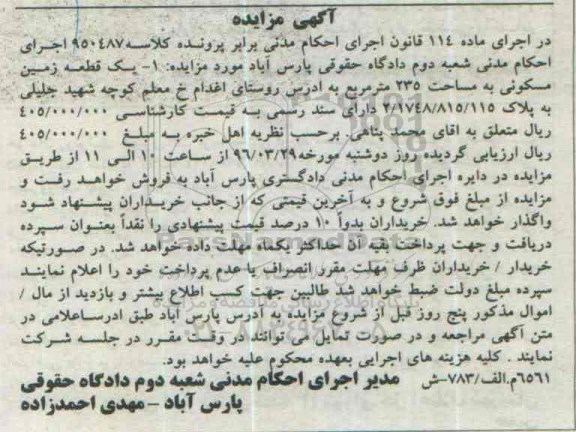 آگهی مزایده
در اجرای ماده ۱۱۴ قانون اجرای احکام مدنی برابر پرونده کلاسه۹۵۰۴۸۷ اجرای
احکام مدنی شعبه دوم دادگاه حقوقی پارس آباد مورد مزایده: ۱- یک قطعه زمین
مسکونی به مساحت ۲۳۵ مترمربع به ادرس روستای اغدام خ معلم کوچه شهید جلیلی
به پلاک ۲/۱۷۴۸/۸۱۵/۱۱۵ دارای سند رسمی به قیمت کارشناسی ۴۰۵/۰۰۰/۰۰۰
ریال متعلق به اقای محمد پناهی. برحسب نظریه اهل خبره به مبلغ ۴۰۵/۰۰۰/۰۰۰
ریال ارزیابی گردیده روز دوشنبه مورخه۹۶/۰۳/۲۹ از ساعت ۱۰ الی ۱۱ از طریق
مزایده در دایره اجرای احکام مدنی دادگستری پارس آباد به فروش خواهد رفت و
مزایده از مبلغ فوق شروع و به آخرین قیمتی که از جانب خریداران پیشنهاد شود
واگذار خواهد شد. خریداران بدواً ۱۰ درصد قیمت پیشنهادی را نقداً بعنوان سپرده
دریافت و جهت پرداخت بقیه آن حداکثر یکماه مهلت داده خواهد شد. در صورتیکه
خریدار / خریداران ظرف مهلت مقرر انصراف یا عدم پرداخت خود را اعلام نمایند
سپرده مبلغ دولت ضبط خواهد شد طالبین جهت کسب اطلاع بیشتر و بازدید از مال /
اموال مذکور پنج روز قبل از شروع مزایده به آدرس پارس آباد طبق ادرساعلامی در
متن آگهی مراجعه و در صورت تمایل می توانند در وقت مقرر در جلسه شرکت
نمایند . کلیه هزینه های اجرایی بعهده محکوم علیه خواهد بود.
۶۵۶۱م.الف/۷۸۳-ش مدیر اجرای احکام مدنی شعبه دوم دادگاه حقوقی
پارس آباد -مهدی احمدزاده